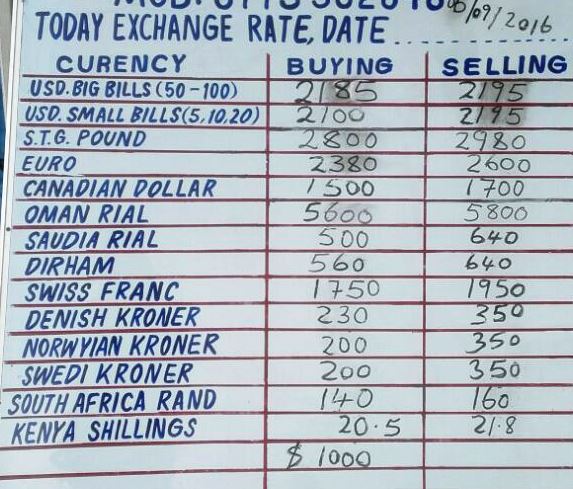 TODAY EXCHANGE RATE, DATE 06/09/2016
CURENCY BUYING SELLING
USD. BIG BILLS (50-100) 2185 2195
USD. SMALL BILLS (5,10,20) 2100 2195
S.T.G. POUND 2800 2980
EURO 2380 2600
CANADIAN DOLLAR 1500 1700
OMAN RIAL 5600 5800
SAUDIA RIAL 500 640
DIRHAM 560 640
SWISS FRANC 1750 1950
DENISH KRONER 230 350
NORWYIAN KRONER 200 350
SWEDI KRONER 200 350
SOUTH AFRICA RAND 140 160
KENYA SHILLINGS 20.5 21.8
$ 1000